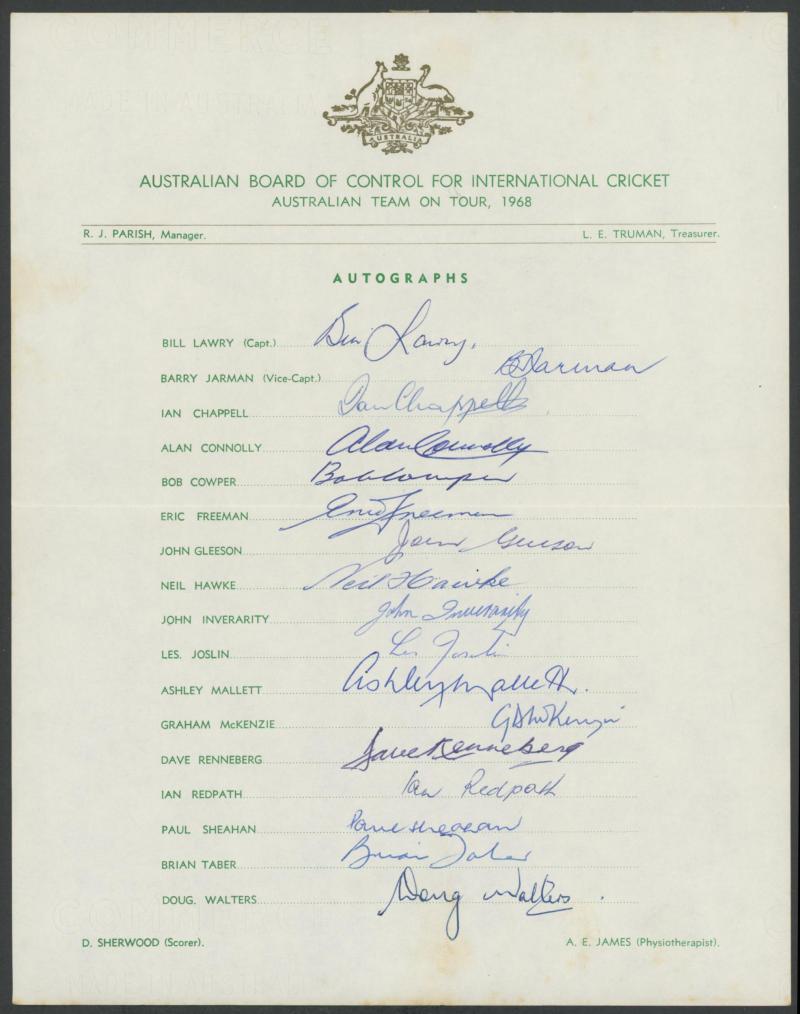 COMMERCE
AUSTRALIA
AUSTRALIAN BOARD OF CONTROL FOR INTERNATIONAL CRICKET
AUSTRALIAN TEAM ON TOUR, 1968
R. J. PARISH, Manager. L. E. TRUMAN, Treasurer.
AUTOGRAPHS
BILL LAWRY (Capt.) Bill Lawry.
BARRY JARMAN (Vice-Capt.) B Jarman
IAN CHAPPELL Ian Chappell
ALAN CONNOLLY Alan Connolly
BOB COWPER Bob Cowper
ERIC FREEMAN Eric Freeman
JOHN GLEESON John Gleeson
NEIL HAWKE Neil Hawke
JOHN INVERARITY John Inverarity
LES. JOSLIN Les Joslin
ASHLEY MALLETT Ashley Mallett.
GRAHAM McKENZIE G D McKenzie
DAVE RENNEBERG Dave Renneberg
IAN REDPATH Ian Redpath
PAUL SHEAHAN Paul Sheahan
BRIAN TABER Brian Taber
DOUG. WALTERS Doug Walters.
D. SHERWOOD (Scorer). A. E. JAMES (Physiotherapist).